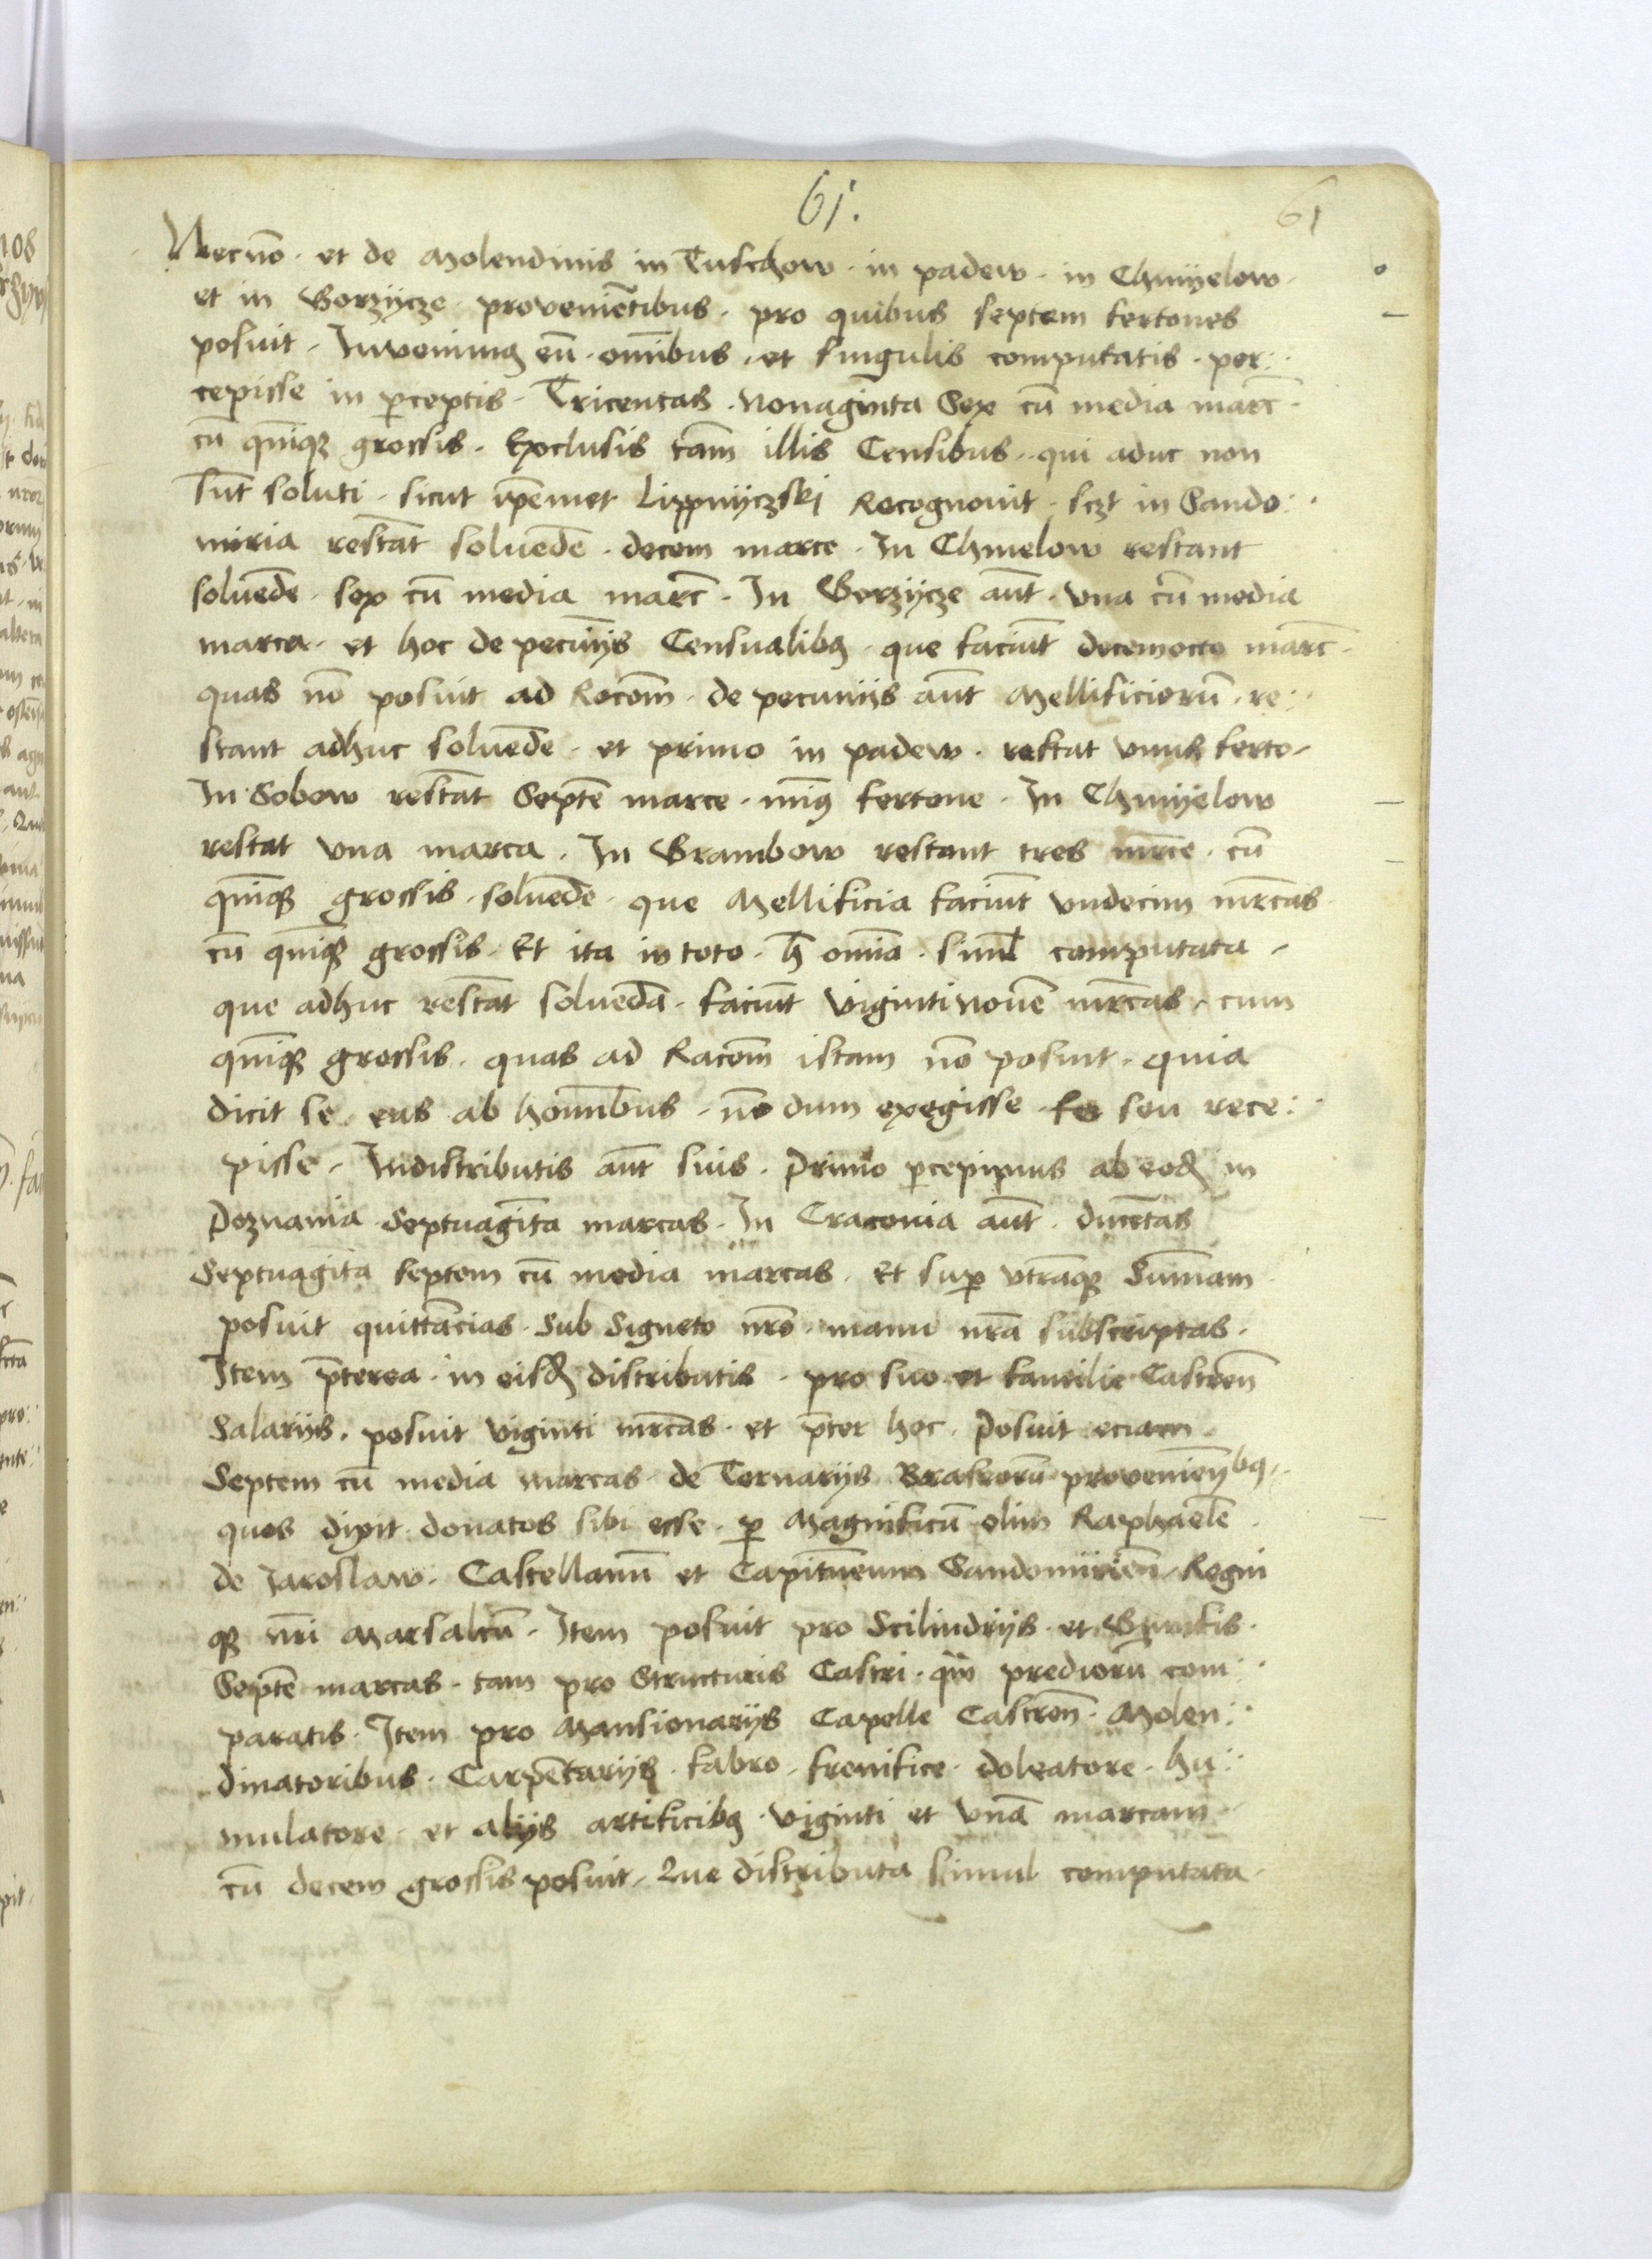 61.
61
Necnō · et de Molendinis in Tuschow · in padew · in Chmyelow ·
et in Gorzycze · provenīetibus · pro quibus septem fertones
posuit · Invenimꝰ eū · omībus · et singulis computatis · per:
cepisse in ꝑceptis · Tricentas · Nonagīnta Sex cū media marc̄ ·
cū qūiqꝫ grossis · Exclusis tam̄ illis Censibus · qui aduc non
sūt soluti · sicut ip̄emet Lippnyczskj Recognouit · sczt in Sando:
miria restāt soluēde · decem marce · In Chmelow restant
soluēde · sex cū media marc̄ · In Gorzycze aūt · vna cū media
marca · et hoc de pecunijs Censualibꝫ · que faciūt decemocto marc̄ ·
quas nō posuit ad Rōcom̄ · de pecuniis aūt Mellificiorū · re:
stant adhuc soluēde · et primo in padew · restat vnus ferto ·
In Sobow restāt Septē marce · mīꝰ fertone · In Chmyelow
restat vna marca · In Grambow restant tres mrc̄e · cū
qūiqꝫ grossis · soluēde · que Mellificia faciūt vndecim mrc̄as
cū qūiqꝫ grossis · Et ita in toto · h̄ omīa · siml̄ computata ·
que adhuc restāt soluēda · faciūt vigintinovē mrc̄as · cum
qūiqꝫ grossis · quas ad Racom̄ istam nō posuit · quia
dicit se · eas ab homībus · nō dum exegisse seu rece:
pisse · Indistributis aūt suis · Primo ꝑcepimus ab eodꝫ in
Poznania Septuagīta marcas · In Craconia aūt · ducētas
Septuagīta septem cū media marcas · Et suꝑ vtrāqꝫ Sūmam
posuit quittācias · Sub Signeto nrō · manu nrā subscriptas ·
Item p̄terea · in eisdꝫ distributis · pro suo et familie Castren̄
Salarijs · posuit viginti mrc̄as · et p̄ter hoc · Posuit eciam
Septem cū media marcas · de Ternarijs Braseorū proveniēnbꝫ ·
quos dixit donatos sibi esse · ꝑ Magnificū olim Raphaelē
de Jaroslaw · Castellanū et Capitan̄eum Sandomirien̄ · Regni
qꝫ nrī Marsalcū · Item posuit pro Scilindrijs · et
Septē marcas · tam pro Structuris Castri · qm̄ prediorū com:
paratis · Item pro Mansionarijs Capelle Castren̄ · Molen:
dinatoribus · Carpētarijs · fabro · frenifice · doleatore · hu:
mulatore · et alijs artificibꝫ · viginti et vnā marcam
cū decem grossis posuit · Que distributa simul computata ·